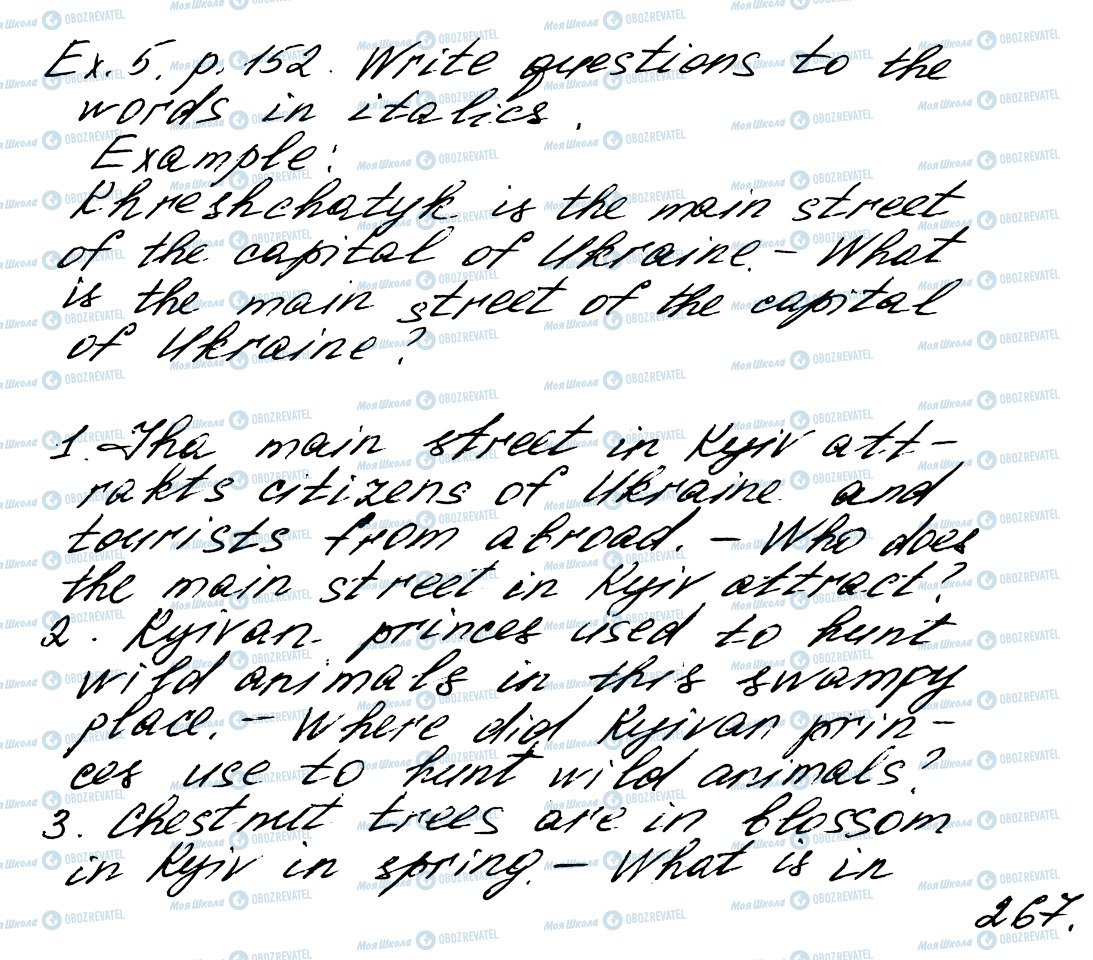 Ex. 5. p. 152. Write questions to the
words in italics.
Example:
Khreshchatyk is the main street
of the capital of Ukraine. – What
is the main street of the capital
of Ukraine?
1. Tha main street in Kyiv att-
rakts citizens of Ukraine and
tourists from abroad. – Who does
the main street in Kyiv attract?
2. Kyivan princes used to hunt
wild animals in this swampy
place. – Where did Kyivan prin-
ces use to hunt wild animals?
3. Chestnut trees are in blossom
in Kyiv in spring. – What is in
267.
МояШкола OBOZREVATEL